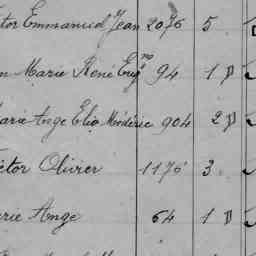 tor Emmanuel Jean 2076 5
n Marie René Eug no 94 1 D
arie Ange Elia Médéric 904 2 D
ictor Olivier 1176 3
arie Ange 64 1 D